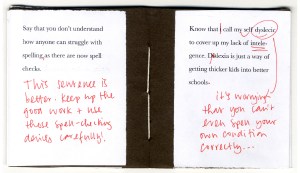 Say that you don't understand
how anyone can struggle with
spelling, as there are now spell
checks.
This sentence is
better. Keep up the
good work + use
those spell-checking
devices carefully!
Know that I call my self dyslecic
to cover up my lack of intele-
gence. Dislecia is just a way of
getting thicker kids into better
schools.
it's worrying
that you can't
even spell your
own condition
correctly...